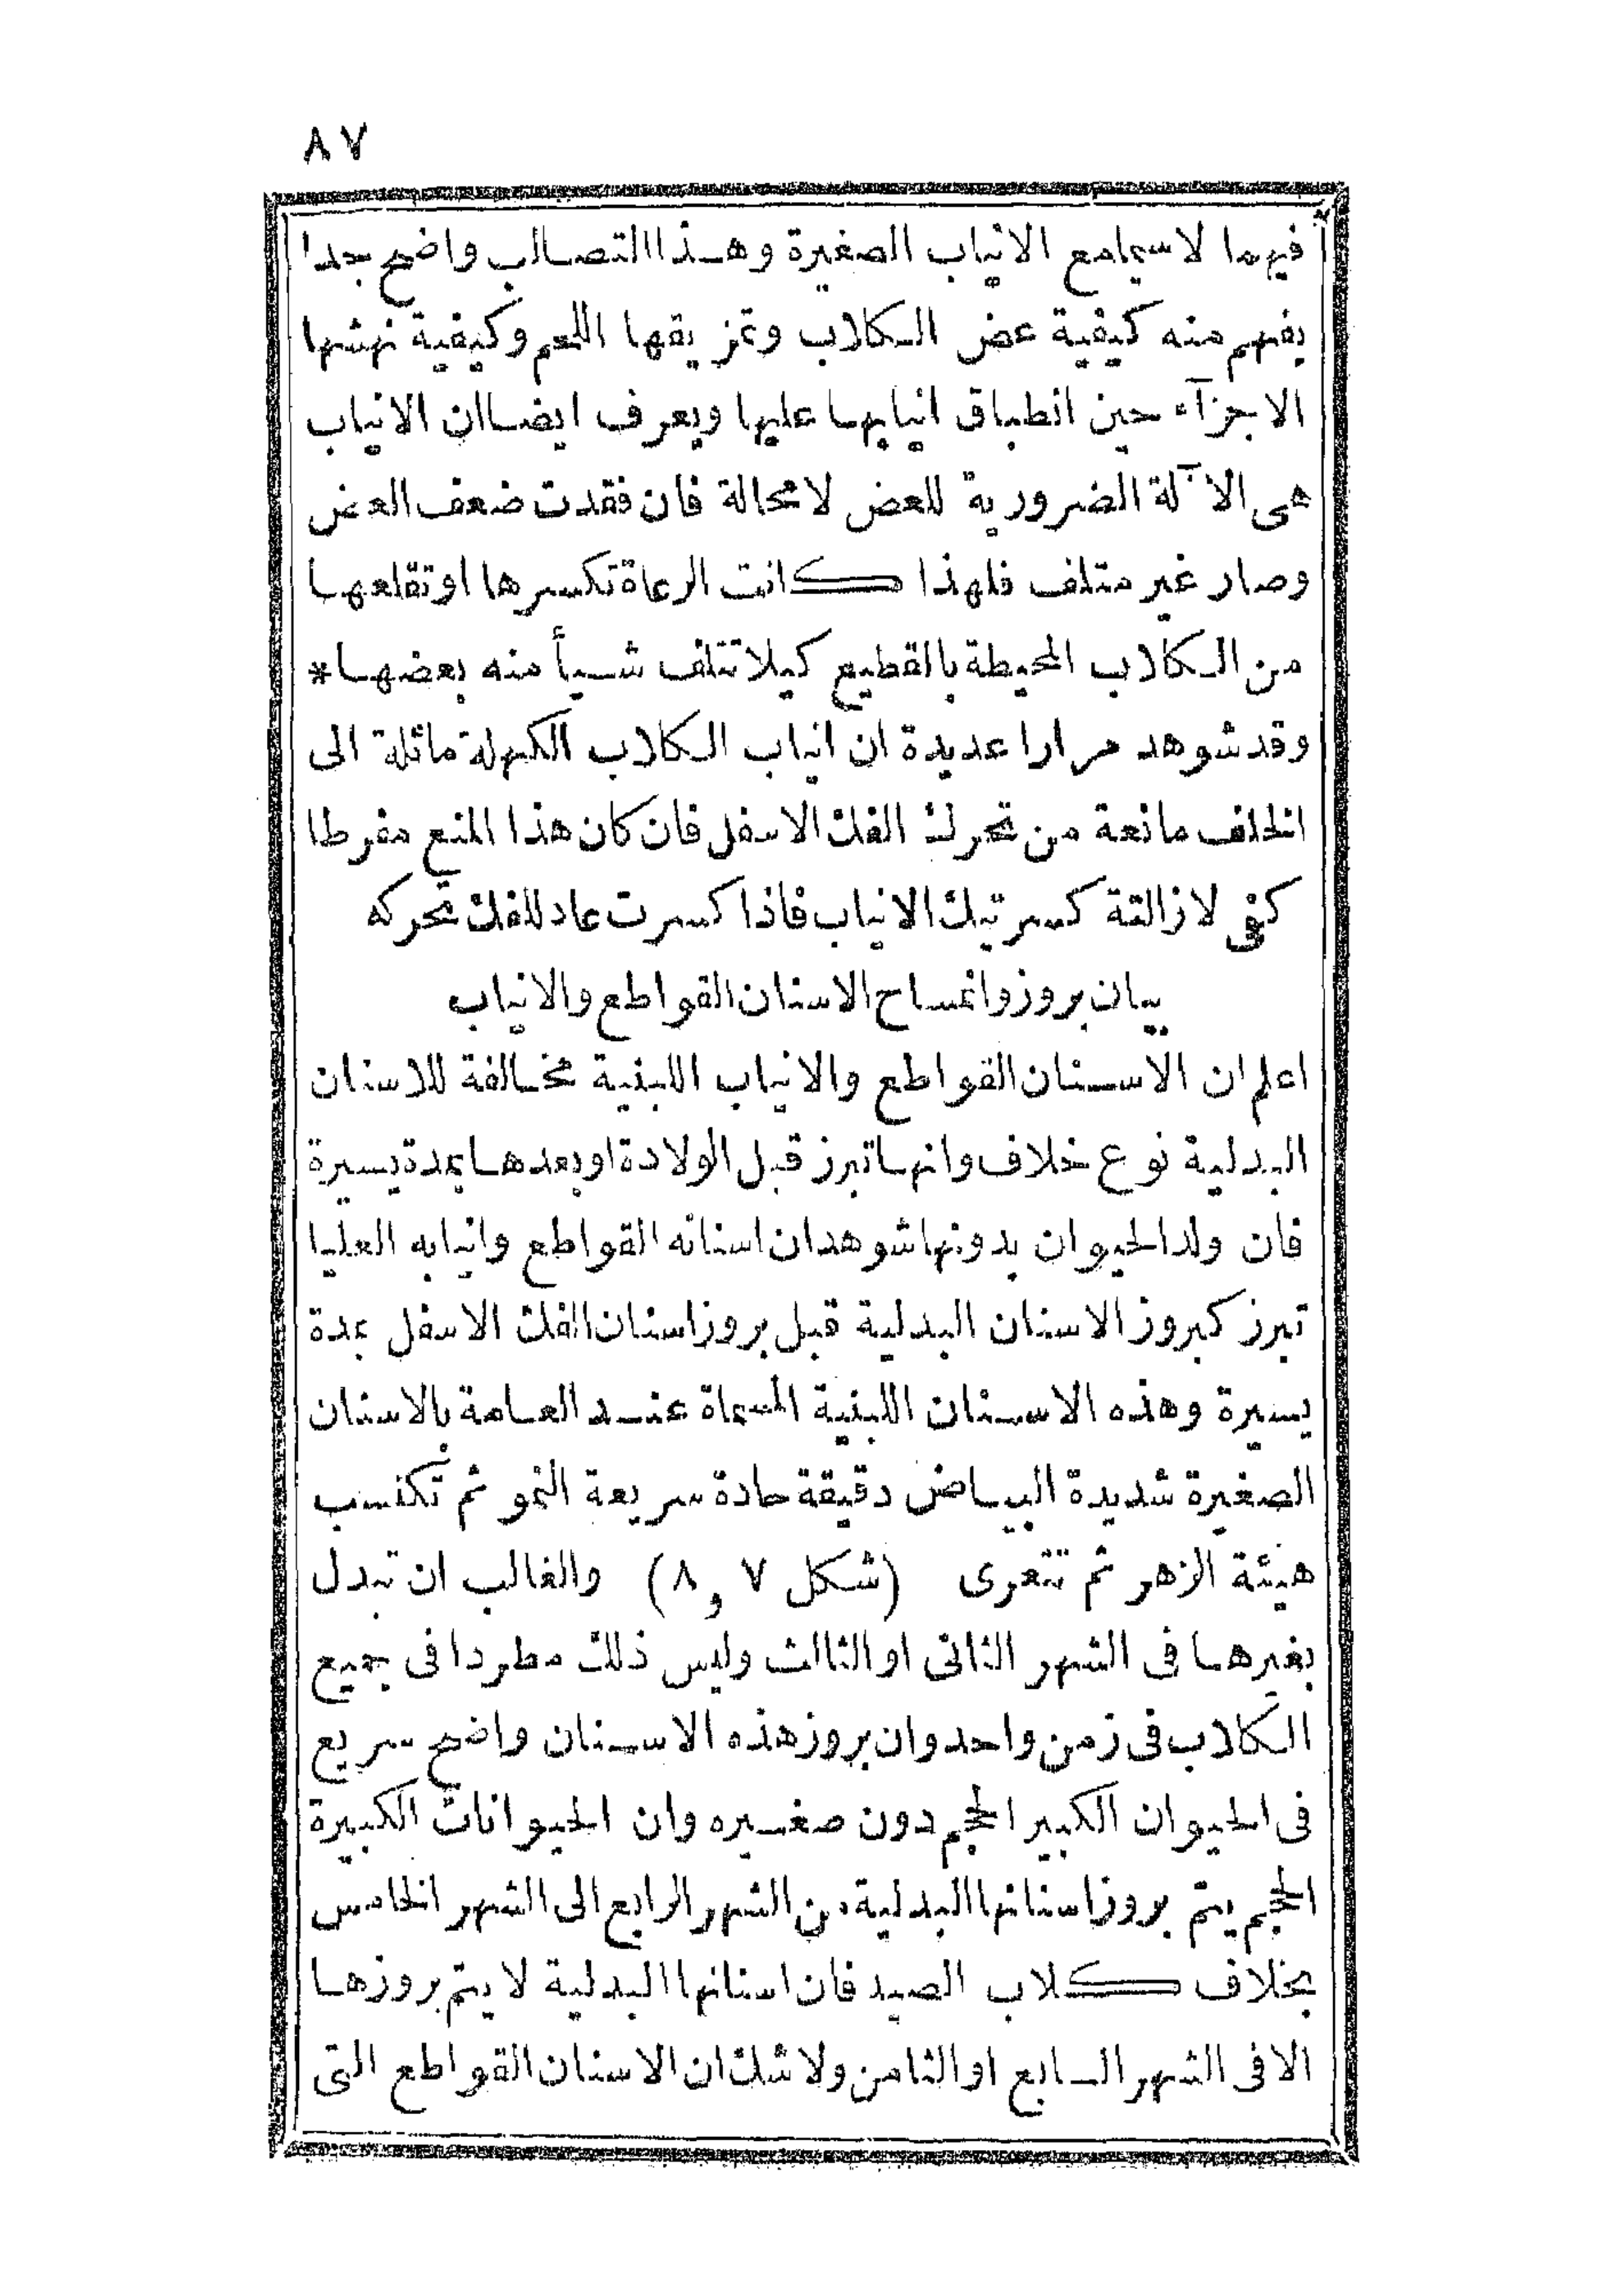 ٨٧
فيهما لا سيما مع الانياب الصغيرة وهذا التصالب واضح جدا
يفهم منه كيفية عض الكلاب وتمزيقها اللحم وكيفية نهشها
الاجزآء حين انطباق انيابها عليها ويعرف ايضا ان الانياب
هى الآلة الضرورية للعض لا محالة فان فقدت ضعف العض
وصار غير متلف فلهذا كانت الرعاة تكسرها او تقلعها
من الكلاب المحيطة بالقطيع كيلا تتلف شيأ منه بعضها *
وقد شوهد مرارا عديدة ان انياب الكلاب الكهلة مائلة الى
الخلف مانعة من تحرك الفك الاسفل فان كان هذا المنع مفرطا
كفى لازالته كسر تيك الانياب فاذا كسرت عاد للفك تحركه
بيان بروز وانمساح الاسنان القواطع والانياب
اعلم ان الاسنان القواطع والانياب اللبنية مخالفة للاسنان
البدلية نوع خلاف وانها تبرز قبل الولادة او بعدها بمدة يسيرة
فان ولد الحيوان بدونها شوهد ان اسنانه القواطع وانيابه العليا
تبرز كبروز الاسنان البدلية قبل بروز اسنان الفك الاسفل بمدة
يسيرة وهذه الاسنان اللبنية المسماة عند العامة بالاسنان
الصغيرة شديدة البياض دقيقة حادة سريعة النمو ثم تكتسب
هيئة الزهر ثم تتعرى (شكل ٧ و ٨) والغالب ان تبدل
بغيرها فى الشهر الثانى او الثالث وليس ذلك مطردا فى جميع
الكلاب فى زمن واحد وان بروز هذه الاسنان واضح سريع
فى الحيوان الكبير الحجم دون صغيره وان الحيوانات الكبيرة
الحجم يتم بروز اسنانها البدلية من الشهر الرابع الى الشهر الخامس
بخلاف كلاب الصيد فان اسنانها البدلية لا يتم بروزها
الا فى الشهر السابع او الثامن ولا شك ان الاسنان القواطع التى